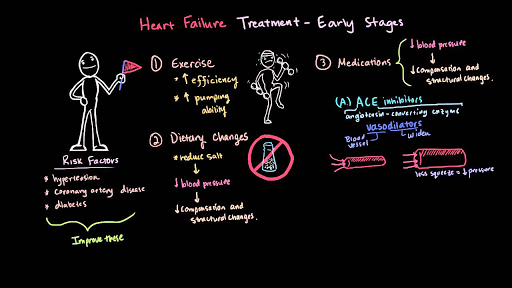 Heart Failure Treatment - Early Stages
Risk Factors
* hypertension
* Coronary artery disease
* diabetes
Improve these
① Exercise
* ↑ efficiency
* ↑ pumping
ability
② Dietary Changes
* reduce salt
↓
↓ blood pressure
↓
↓ Compensation and
structural changes.
③ Medications
↓ blood pressure
↓
↓ Compensation and
structural changes.
(A) ACE inhibitors
angiotensin-converting enzyme
vasodilators
Blood
vessel
widen
less squeeze = ↓ pressure